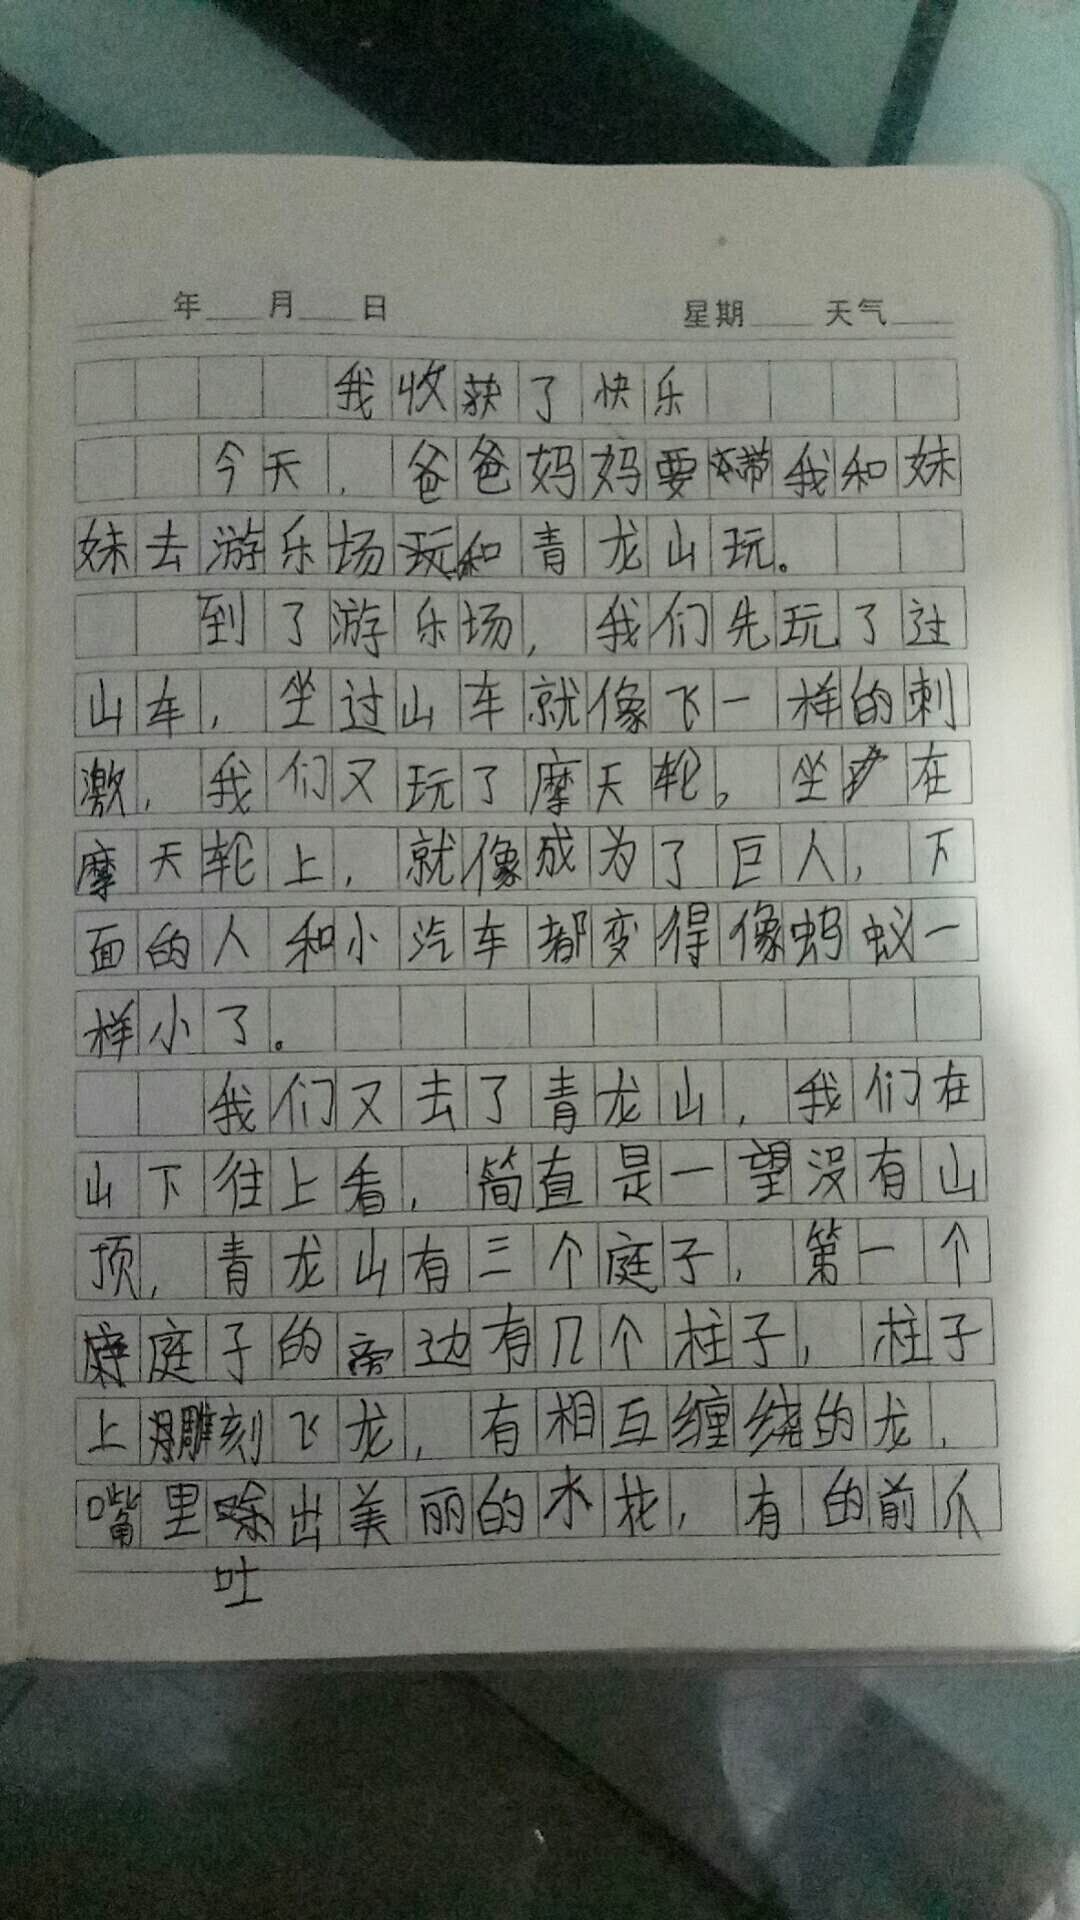 年 月 日 星期 天气
我收获了快乐
今天，爸爸妈妈要带我和妹
妹去游乐场玩和青龙山玩。
到了游乐场，我们先玩了过
山车，坐过山车就像飞一样的刺
激，我们又玩了摩天轮。坐在
摩天轮上，就像成为了巨人，下
面的人和小汽车都变得像蚂蚁一
样小了。
我们又去了青龙山，我们在
山下往上看，简直是一望没有山
顶，青龙山有三个庭子，第一个
庭子的旁边有几个柱子，柱子
上雕刻飞龙，有相互缠绕的龙，
嘴里吐出美丽的水花，有的前爪